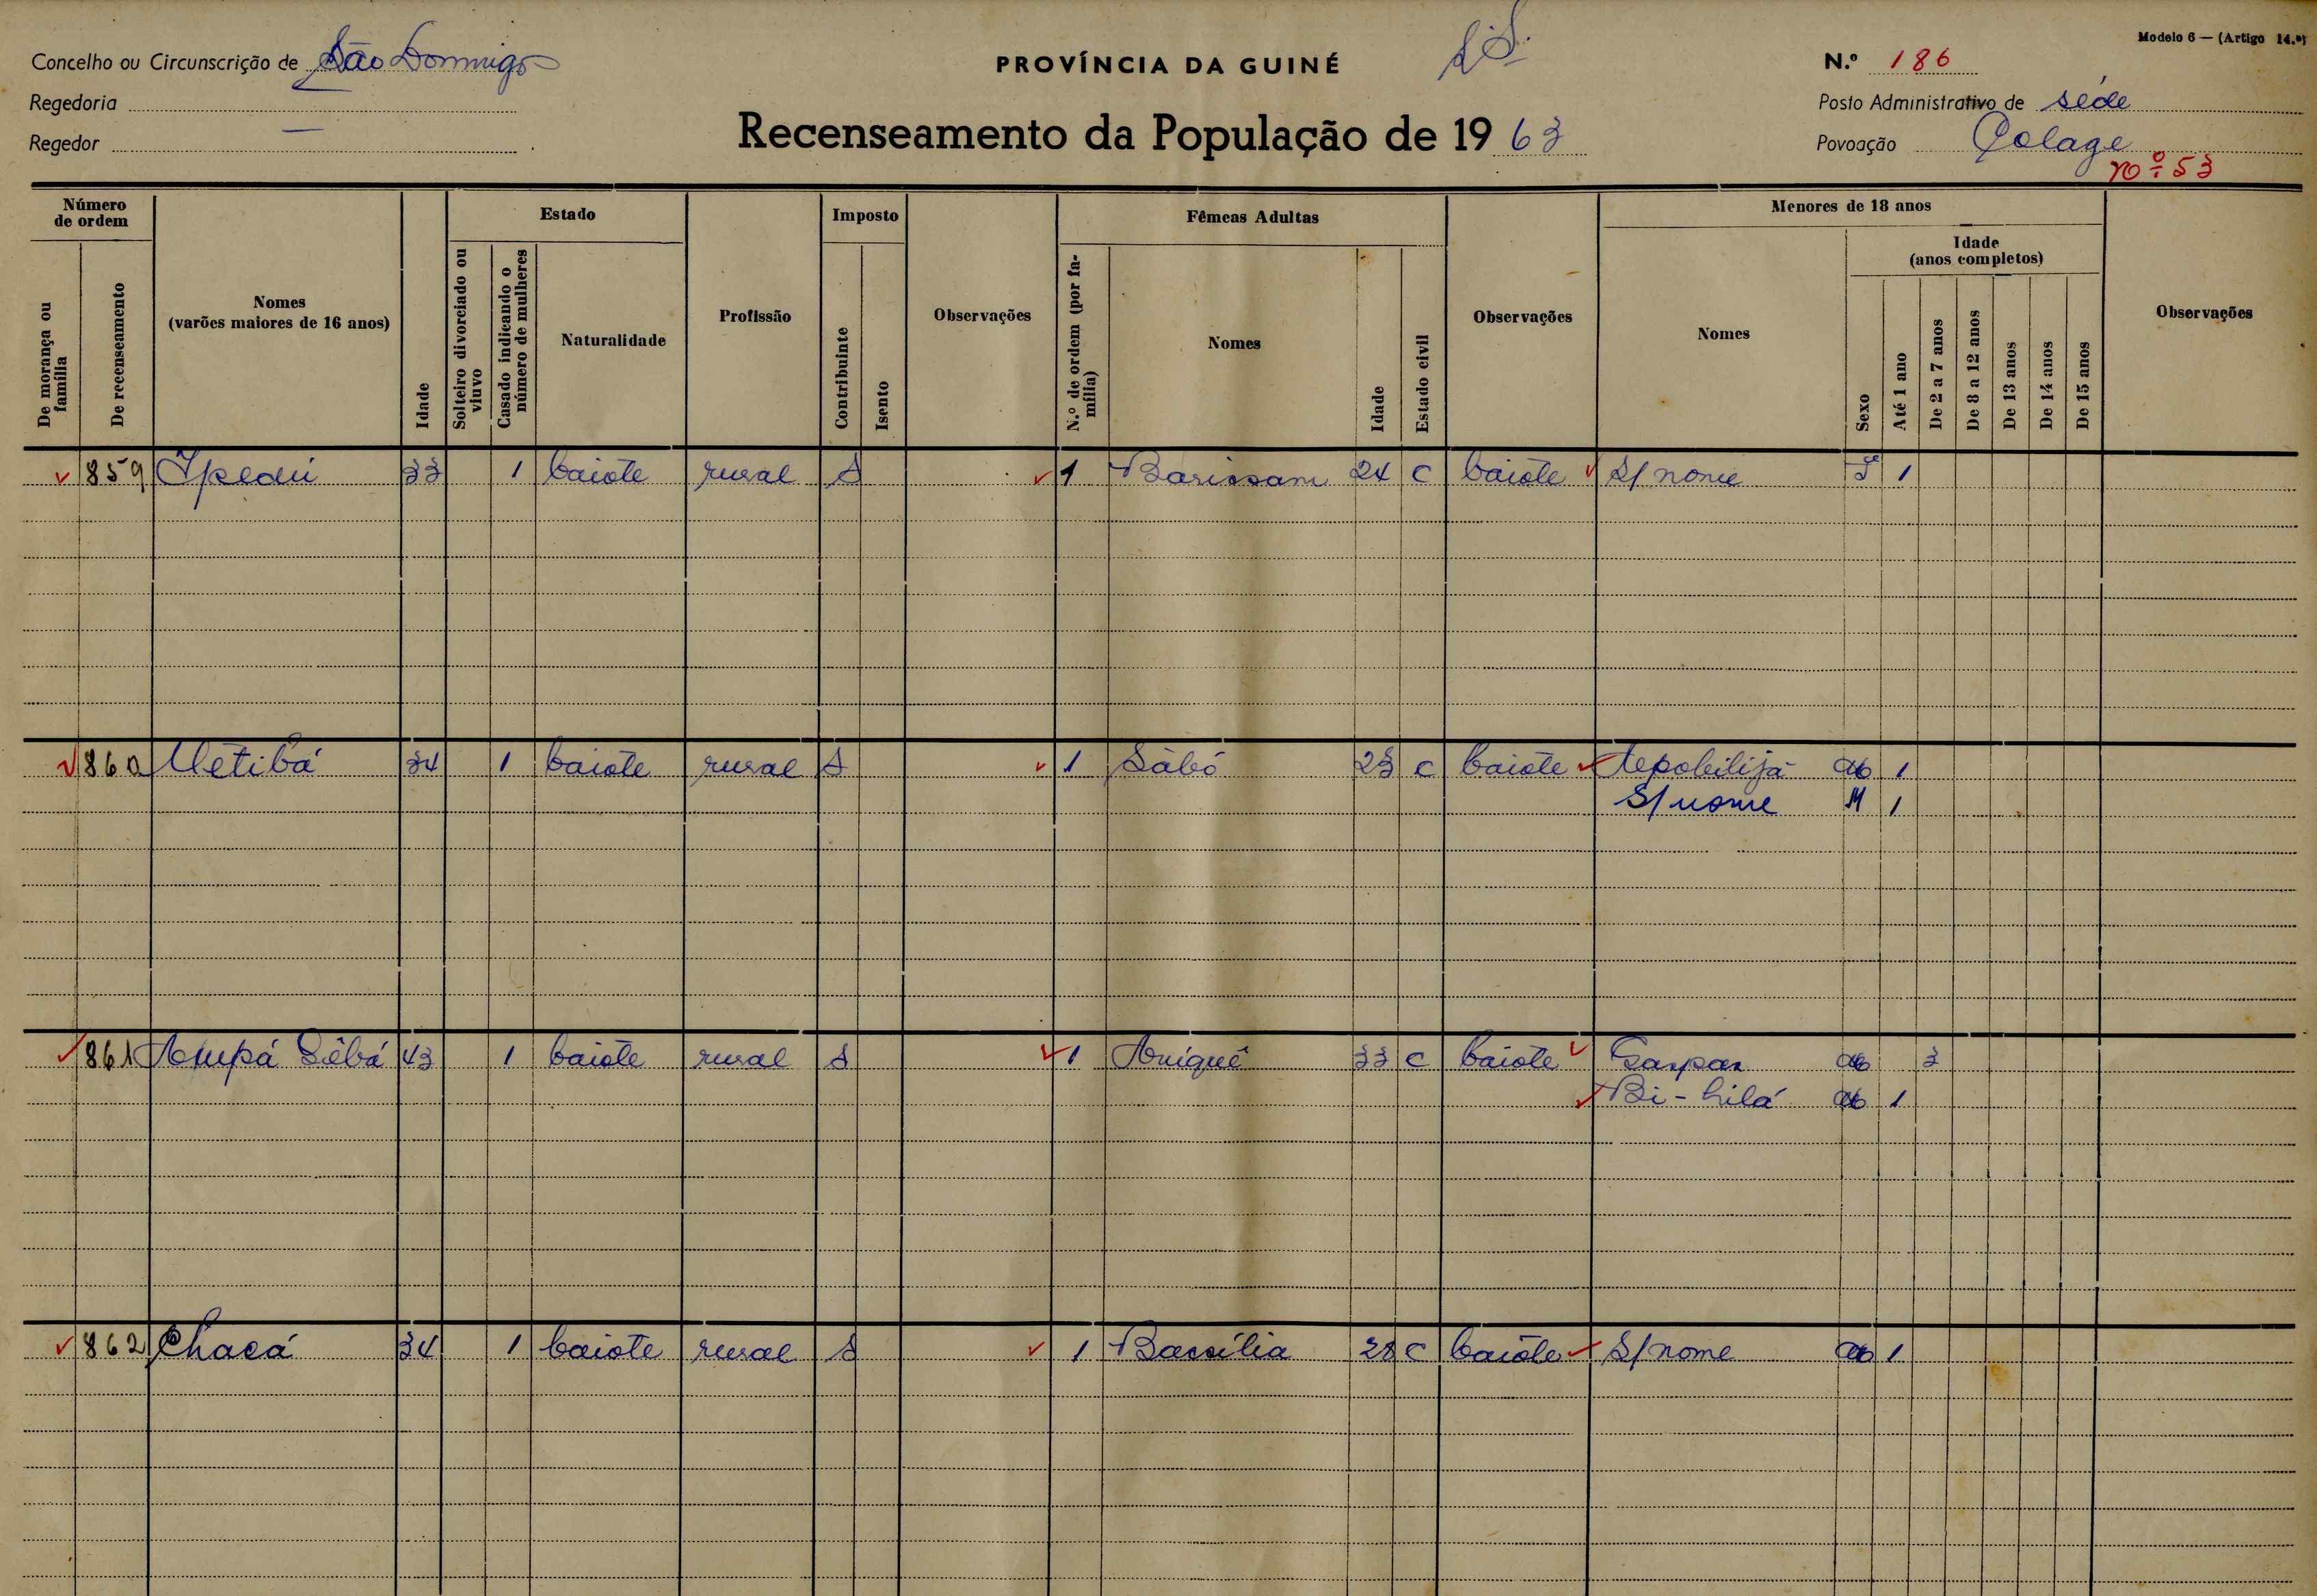 Modelo 6 — (Artigo 14.º)
Concelho ou Circunscrição de São Domingos
PROVÍNCIA DA GUINÉ
N.º 186
Regedoria
Posto Administrativo de séde
Recenseamento da População de 1963
Regedor —
Povoação Colage
nº 53
Número de ordem
Estado
Imposto
Fêmeas Adultas
Menores de 18 anos
De morança ou família
De recenseamento
Nomes (varões maiores de 16 anos)
Idade
Solteiro divorciado ou viuvo
Casado indicando o número de mulheres
Naturalidade
Profissão
Contribuinte
Isento
Observações
N.º de ordem (por família)
Nomes
Idade
Estado civil
Observações
Nomes
Sexo
Idade (anos completos)
Até 1 ano
De 2 a 7 anos
De 8 a 12 anos
De 13 anos
De 14 anos
De 15 anos
Observações
859 33 1 baiote rural S 1 Barissam 24 C baiote S/ nome F 1
860 Uetibá 34 1 baiote rural S 1 Sàbó 23 C baiote M 1
S/ nome M 1
861 43 1 baiote rural S 1 33 C baiote Gaspar M 3
Bi-hilá M 1
862 Chacá 34 1 baiote rural S 1 Bassília 28 C baiote S/ nome M 1